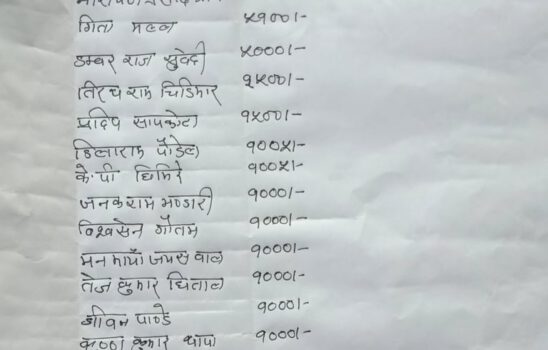 गिता मल्ल ५१००१-
डम्बर राज सुवेदी ५०००१-
तिरथ राम चिडिमार २५००१-
प्रदिप सापकोटा १५००१-
डिलाराम पौडेल १००५१-
के.पी घिमिरे १००५१-
जनक राम भण्डारी १०००१-
विश्वसेन गौतम १०००१-
मन माया जयसवाल १०००१-
तेज कुमार घिताल १०००१-
जीवन पाण्डे १०००१-
कुमार थापा १०००१-